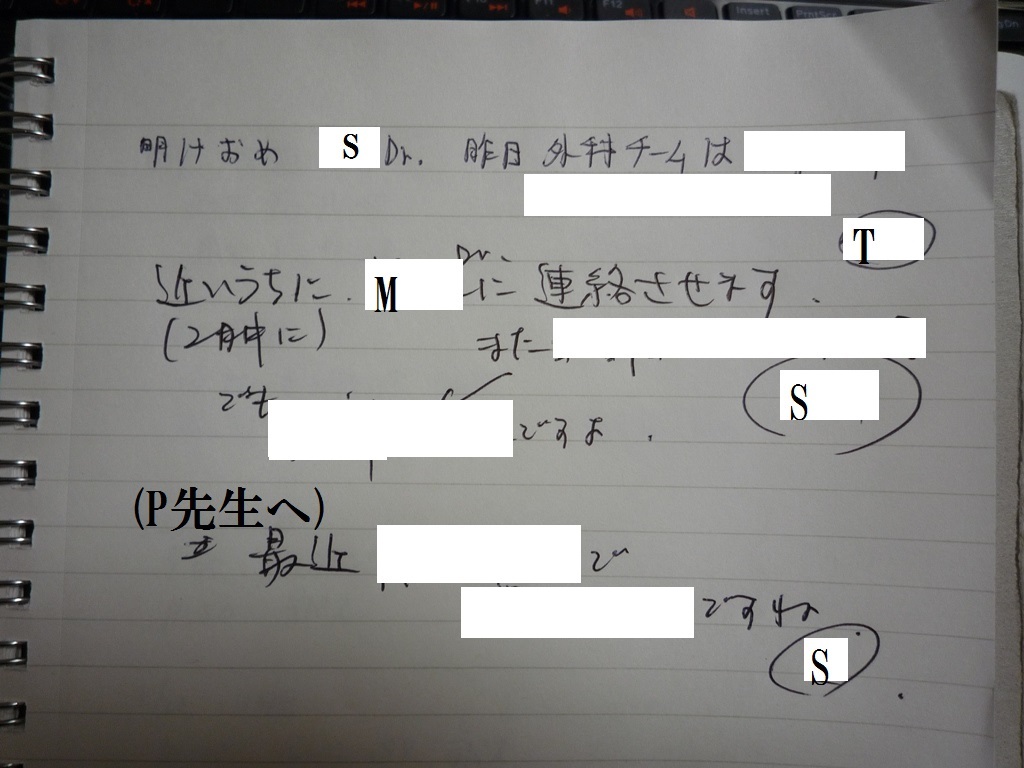 Insert
明けおめ S Dr. 昨日 外科チームは
T
近いうちに M Dr. に 連絡させます.
(2月中に)
また
S
でも ですよ.
(P先生へ)
最近 で
ですね
S